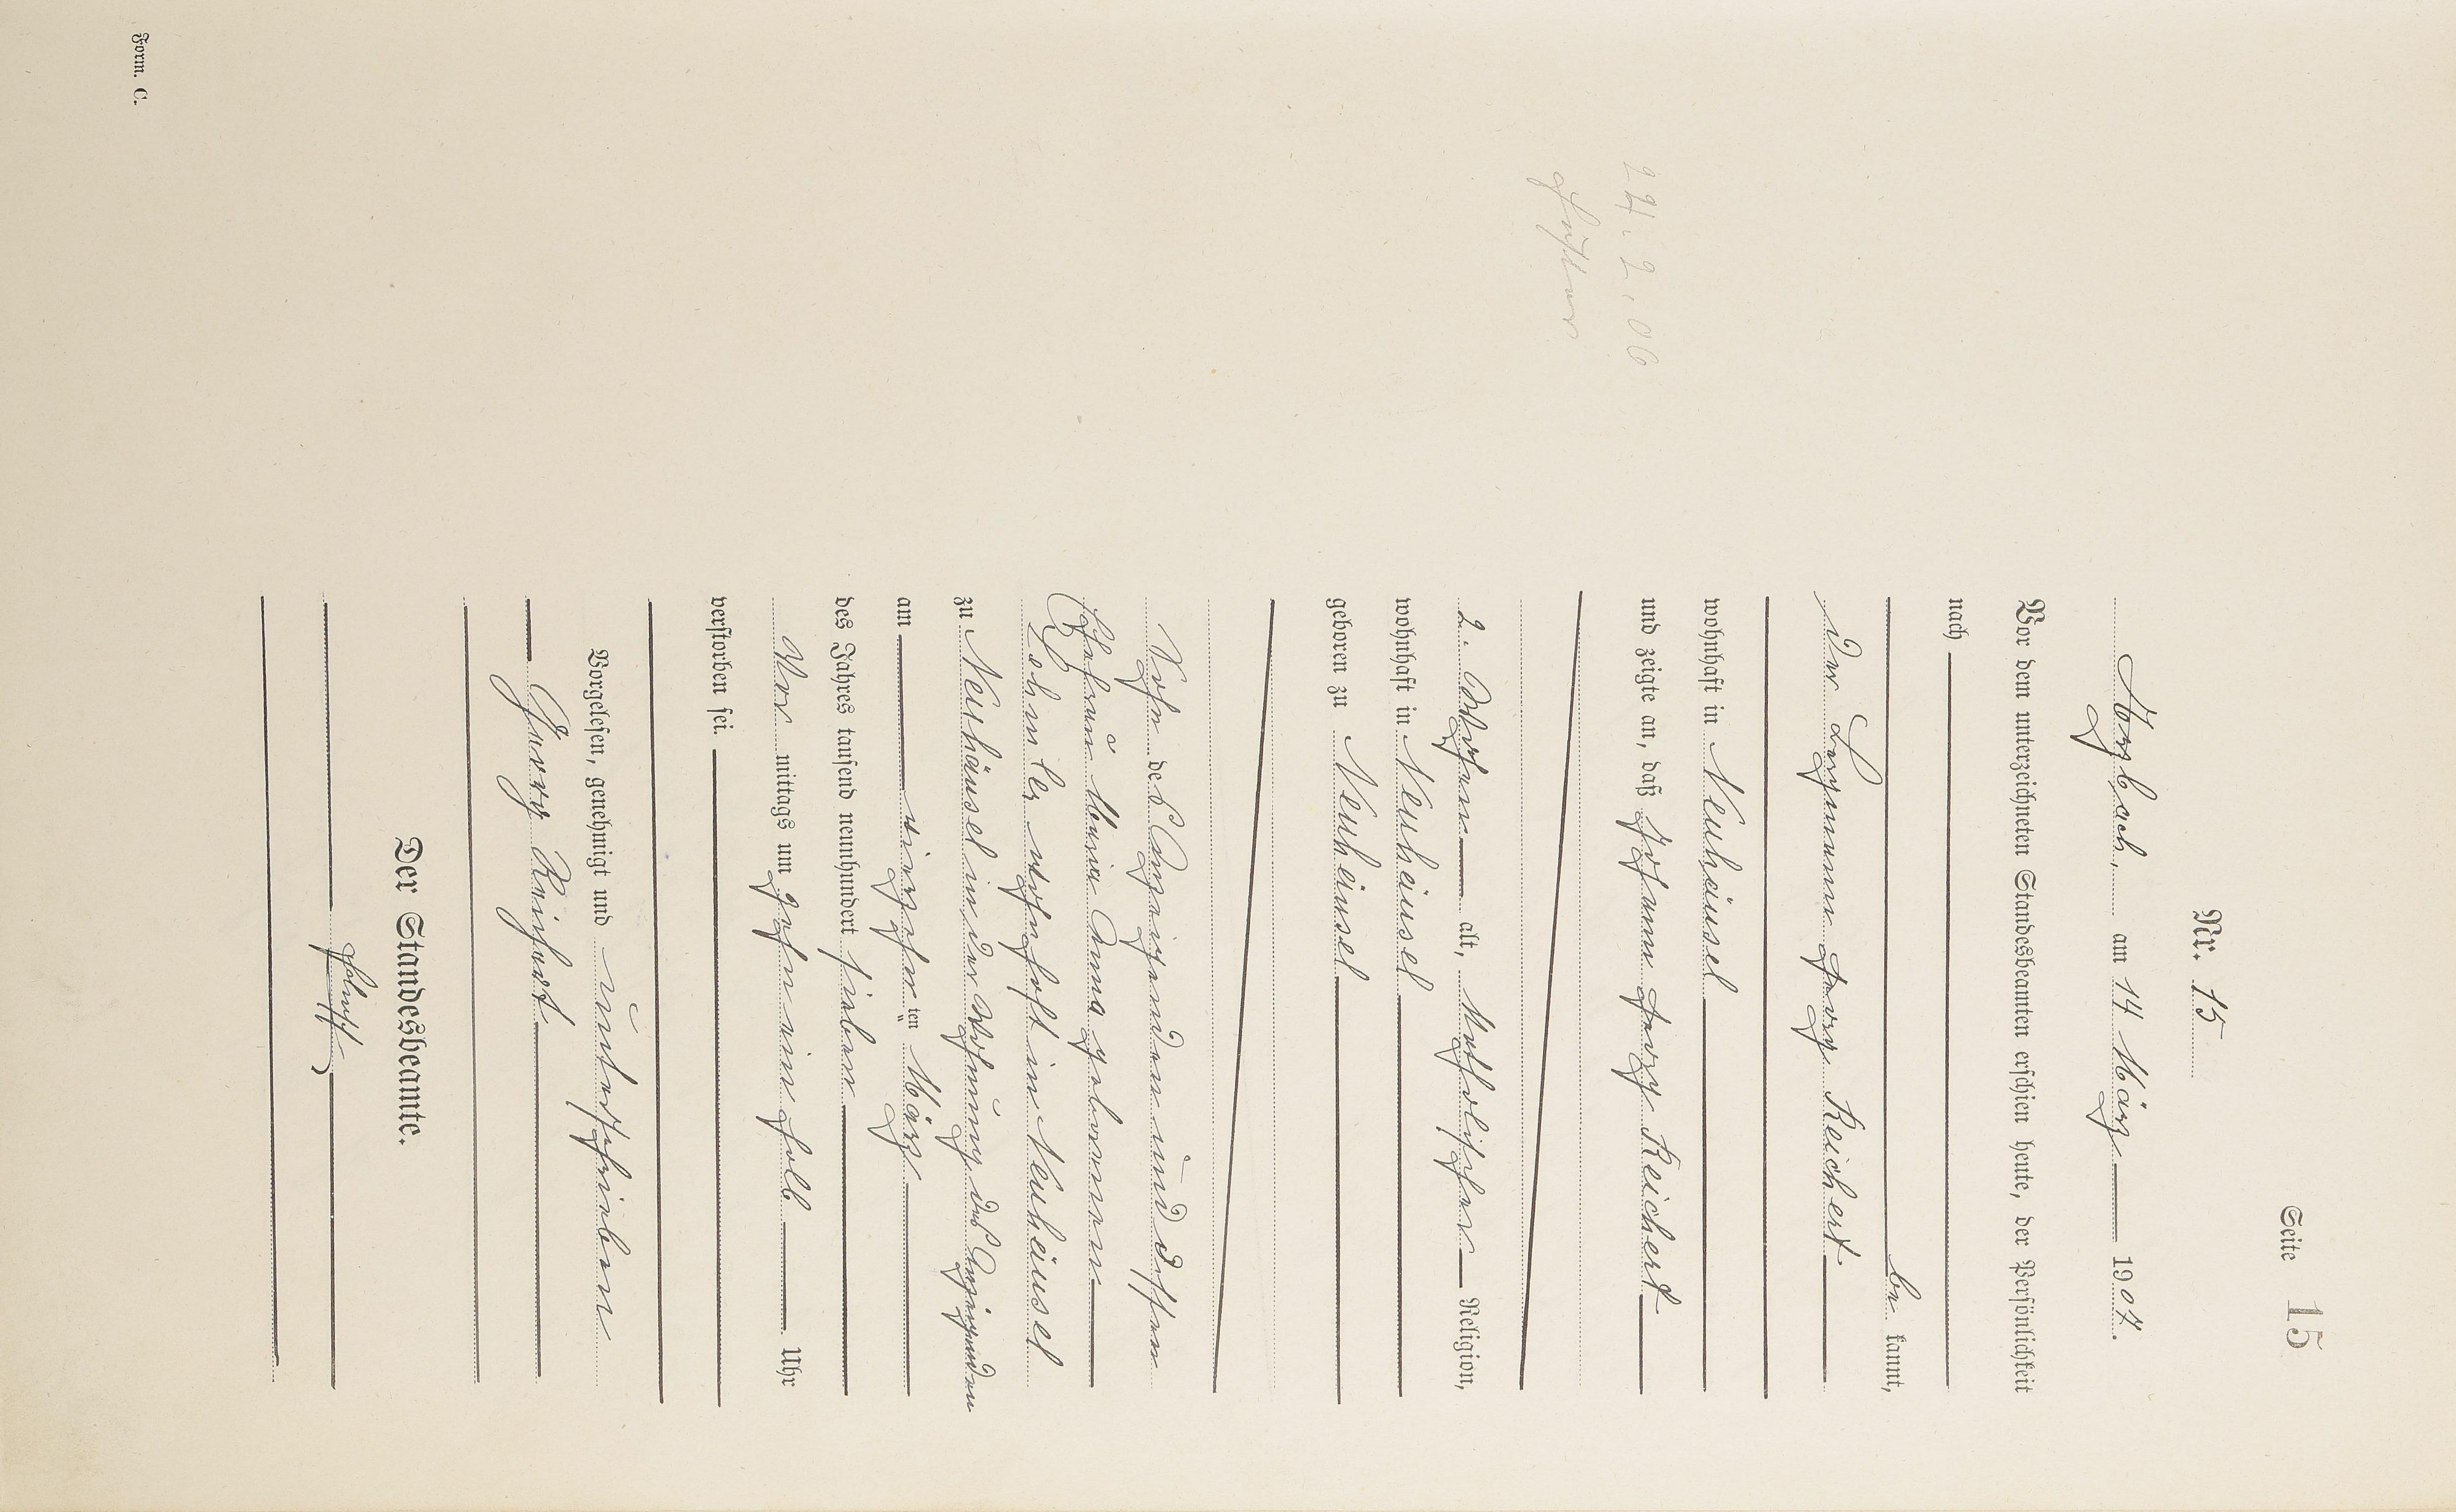 Seite 15
Nr. 15
am 14 März 1907.
Vor dem unterzeichneten Standesbeamten erschien heute, der Persönlichkeit
nach
be kannt,
der Bergmann Georg Reichert
wohnhaft in Neuhäusel
und zeigte an, daß Johann Georg Reichert
2 Wochen alt, katholischer Religion,
wohnhaft in Neuhäusel
geboren zu Neuhäusel
Sohn des Anzeigenden und dessen
Ehefrau Maria Anna geborenen
wohnhaft in Neuhäusel
zu Neuhäusel in der Wohnung des Anzeigenden
am vierzehn ten März
des Jahres tausend neunhundert sieben
Vor mittags um zehn ein halb Uhr
verstorben sei.
Vorgelesen, genehmigt und unterschrieben
Georg Reichert
Der Standesbeamte.
24. 2. 06
Form. C.